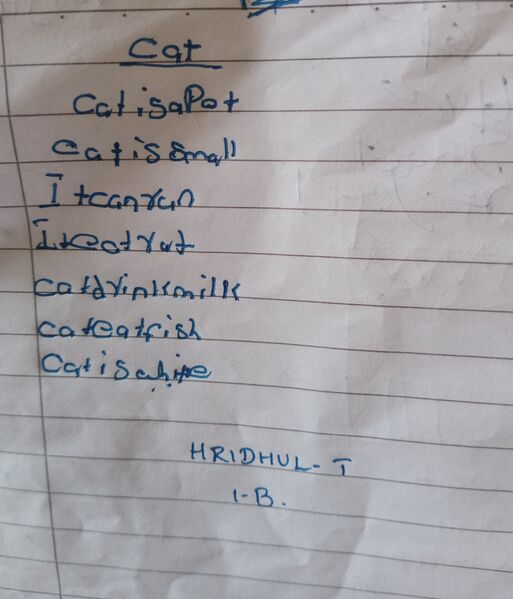 Cat
Catisapot
catissmall
Itcanrun
Iteatrat
catdrinkmilk
cateatfish
HRIDHUL-T
1-B.